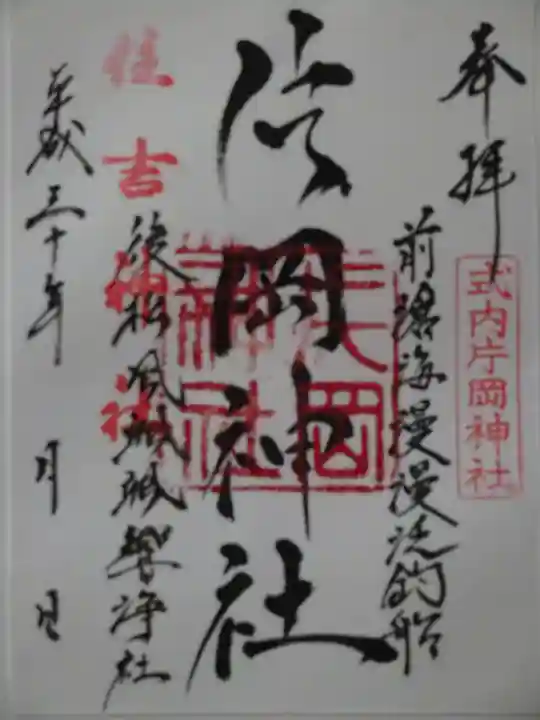 奉拝
式内片岡神社
前 海漫漫 釣船
片岡神社
後松風颯颯響浄社
住吉神社
平成三十年 月 日